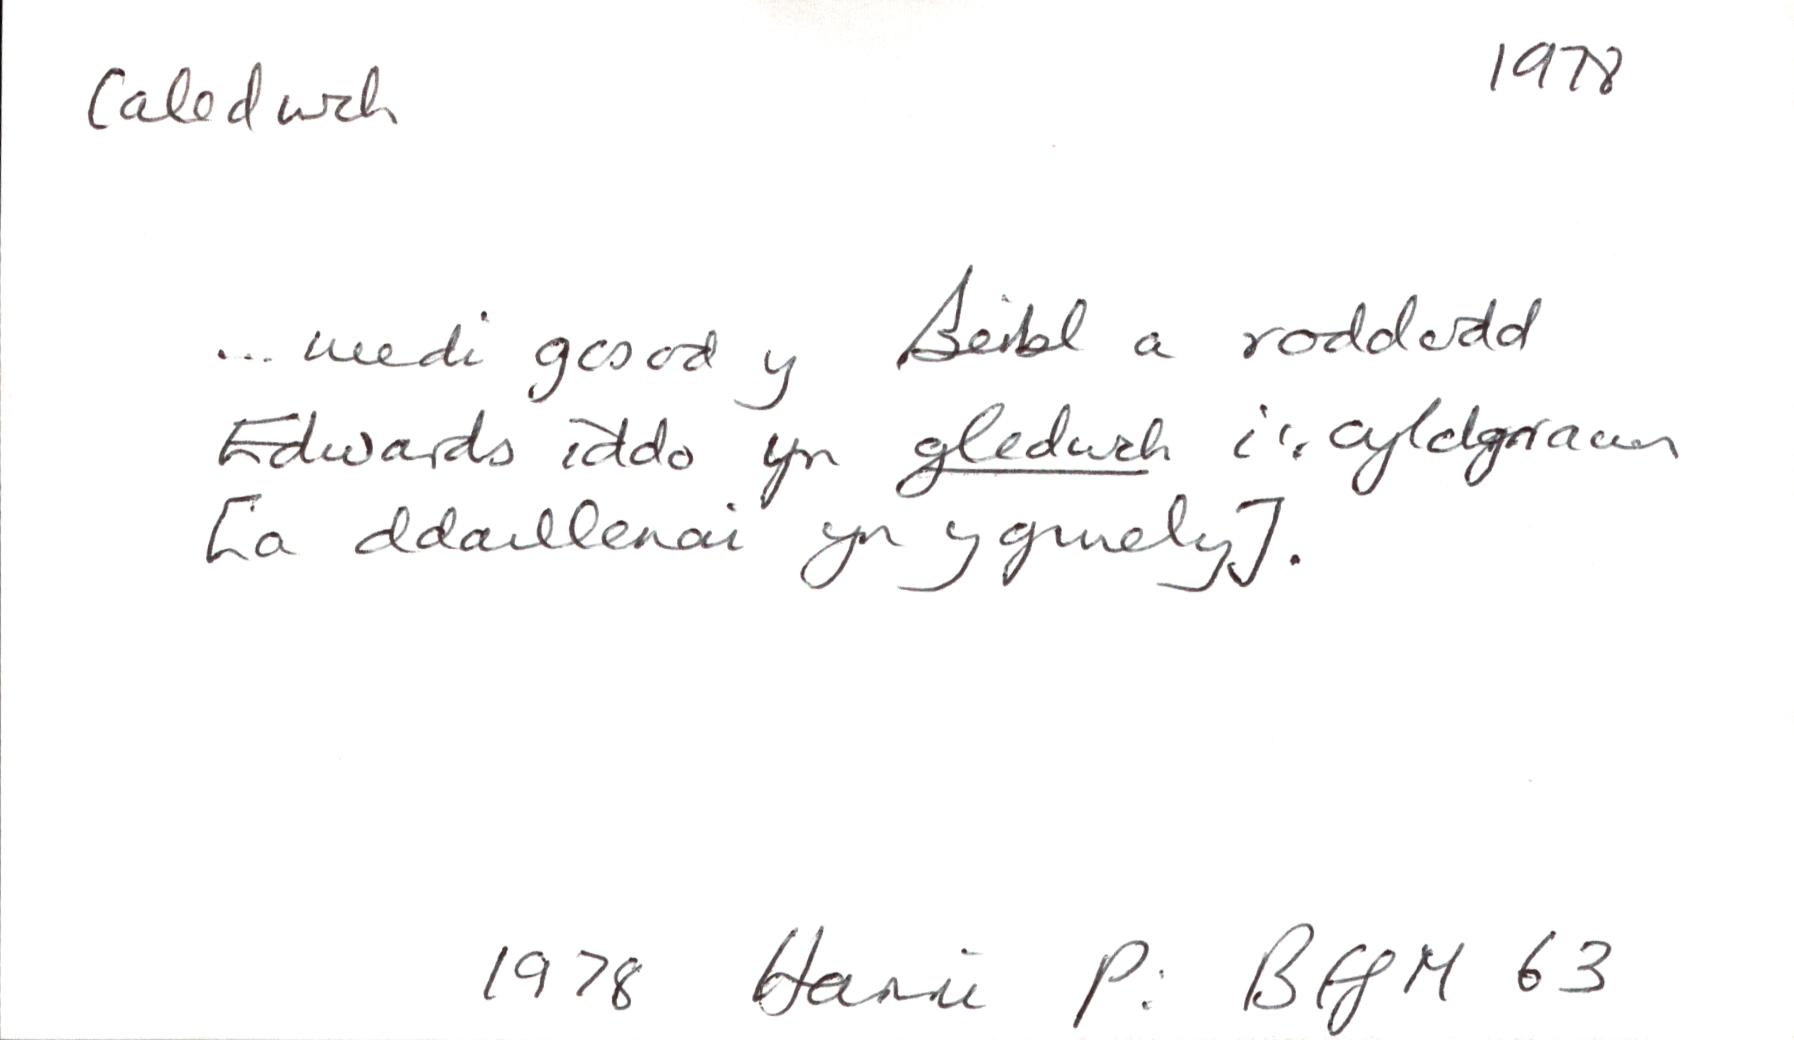 Caledwch 1978
... wedi gosod y Beibl a roddodd
Edwards iddo yn gledwch i'r cylchgrawn
[a ddarllenai yn y gwely].
1978 Harri P: BFfM 63